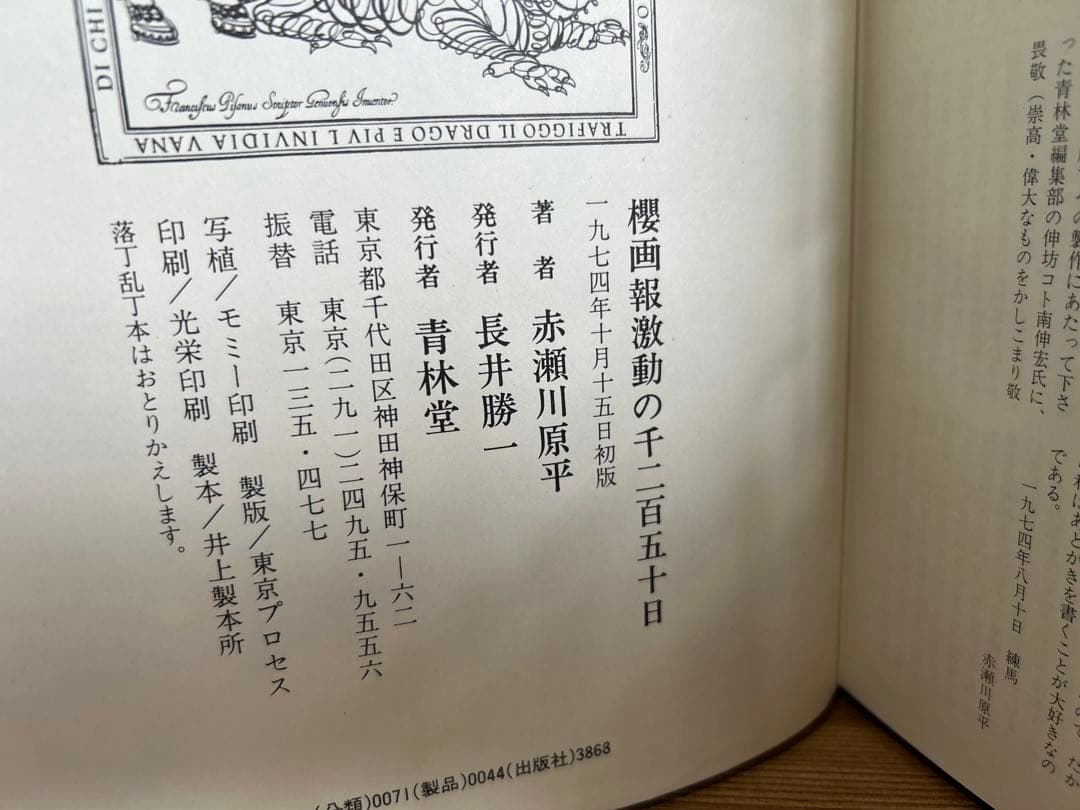 った青林堂編集部の伸坊コト南伸宏氏に、
畏敬（崇高・偉大なものをかしこまり敬
製作にあたって下さ
あとがきを書くことが大好きなの
である。
一九七四年八月十日 練馬
赤瀬川原平
DI CHI
Franciscus Pisonus Scriptor Genuensis Inventor.
TRAFIGGO IL DRAGO E PIV L INVIDIA VANA
櫻画報激動の千二百五十日
一九七四年十月十五日初版
著 者 赤瀬川原平
発行者 長井勝一
発行者 青林堂
東京都千代田区神田神保町一―六二
電話 東京(二九一)二四九五・九五五六
振替 東京一三五・四七七
写植／モミー印刷 製版／東京プロセス
印刷／光栄印刷 製本／井上製本所
落丁乱丁本はおとりかえします。
(分類)0071(製品)0044(出版社)3868